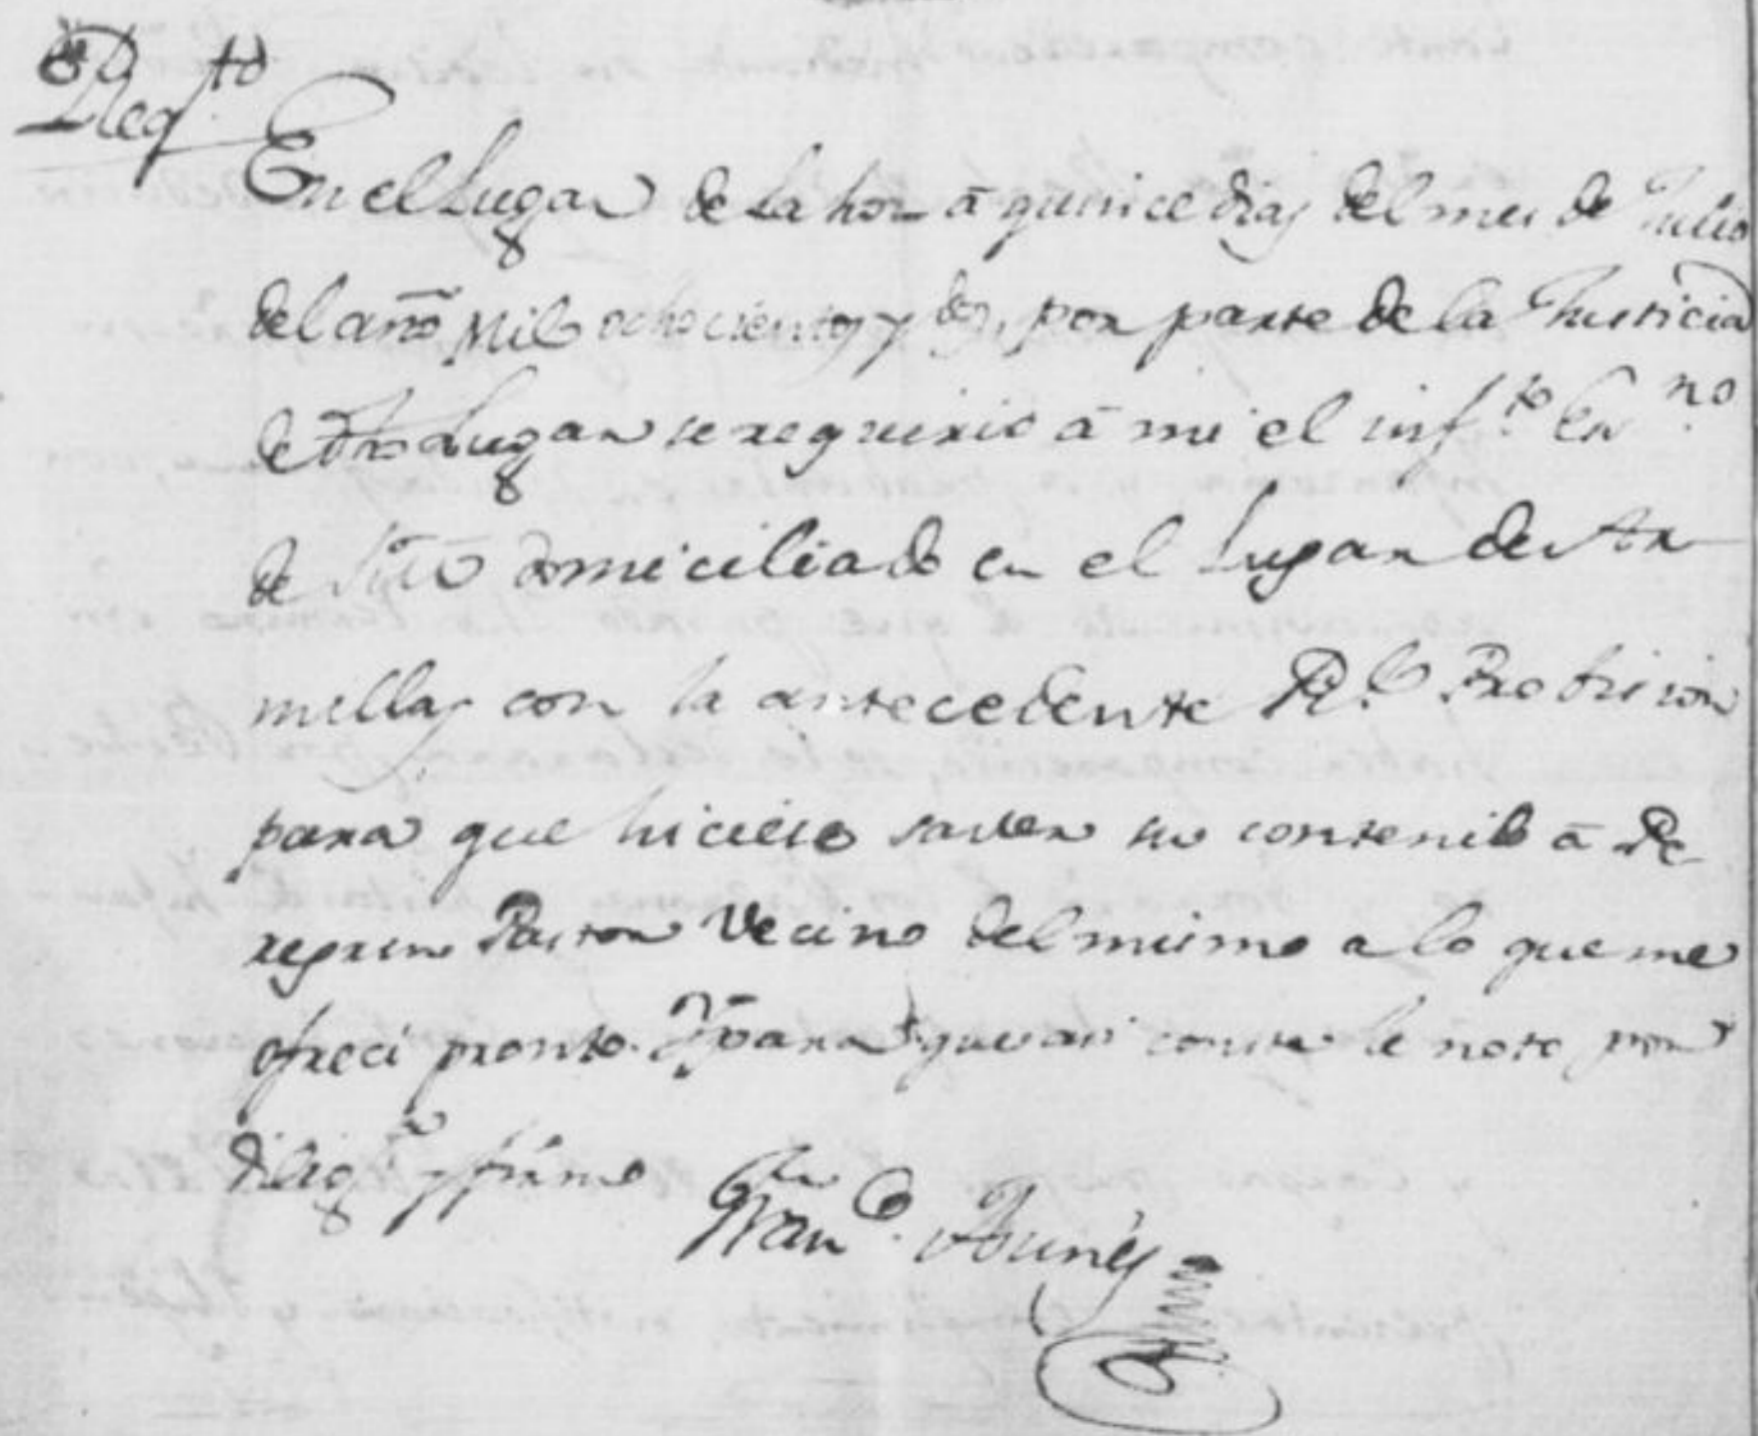 Req.to
En el Lugar de Lahoz â quince dias del mes de Julio
del año Mil ochocientos y dos, por parte de la Justicia
de dho Lugar se requirio â mi el inf.to Es.no
de Sitio domiciliado en el Lugar de Ar-
millas con la antecedente R.l Probision
para que hiciese saver su contenido â Pe-
regrin Pastor Vecino del mismo a lo que me
ofreci pronto. Y para que asi conste lo noto por
dilig.a y firmo
Fran.co Funes